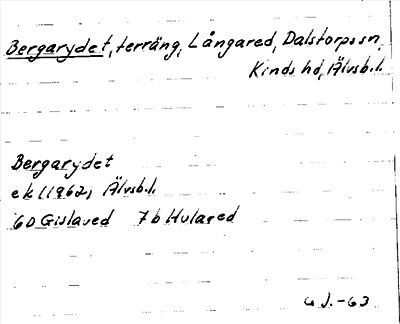 Bergarydet, terräng, Långared, Dalstorps sn,
Kinds hd, Älvsb.l.
Bergarydet
ek (1962) Älvsb.l.
6D Gislaved 7b Hulared
G J. -63